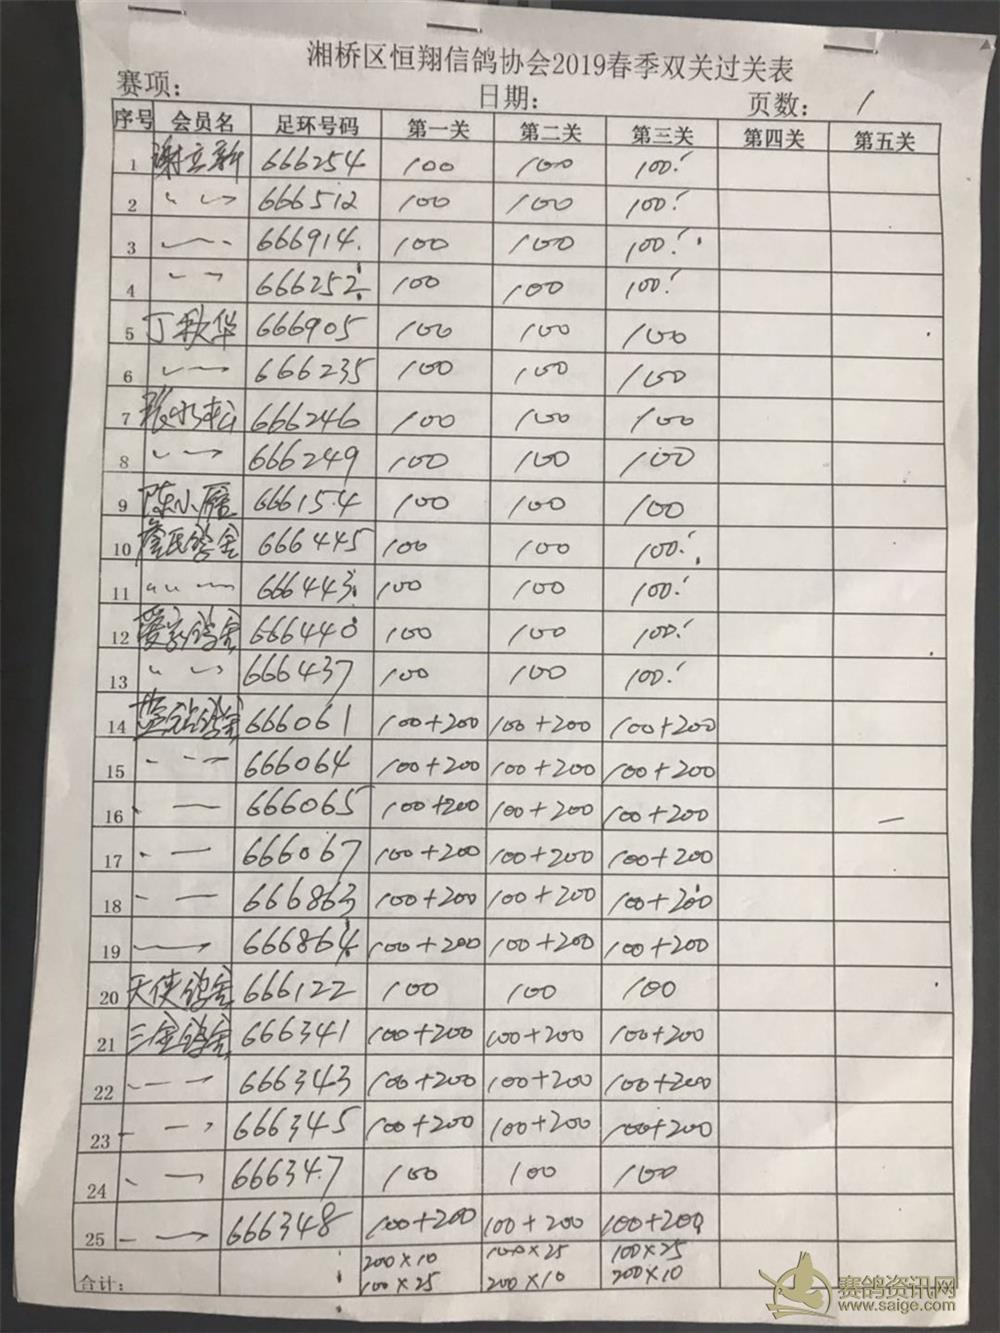 湘桥区恒翔信鸽协会2019春季双关过关表
赛项: 日期: 页数: 1
序号 会员名 足环号码 第一关 第二关 第三关 第四关 第五关
1 谢立新 666254 100 100 100!
2 〃 666512 100 100 100!
3 〃 666914 100 100 100!
4 〃 666252 100 100 100!
5 丁秋华 666905 100 100 100
6 〃 666235 100 100 100
7 666246 100 100 100
8 〃 666249 100 100 100
9 陈小 666154 100 100 100
10 詹氏鸽舍 666445 100 100 100!
11 〃 666443 100 100 100!
12 鸽舍 666440 100 100 100!
13 〃 666437 100 100 100!
14 鸽舍 666061 100+200 100+200 100+200
15 〃 666064 100+200 100+200 100+200
16 〃 666065 100+200 100+200 100+200
17 〃 666067 100+200 100+200 100+200
18 〃 666863 100+200 100+200 100+200
19 〃 666864 100+200 100+200 100+200
20 天侠鸽舍 666122 100 100 100
21 三金鸽舍 666341 100+200 100+200 100+200
22 〃 666343 100+200 100+200 100+200
23 〃 666345 100+200 100+200 100+200
24 〃 666347 100 100 100
25 〃 666348 100+200 100+200 100+200
合计: 200×10 100×25 100×25
100×25 200×10 200×10
赛鸽资讯网
www.saige.com